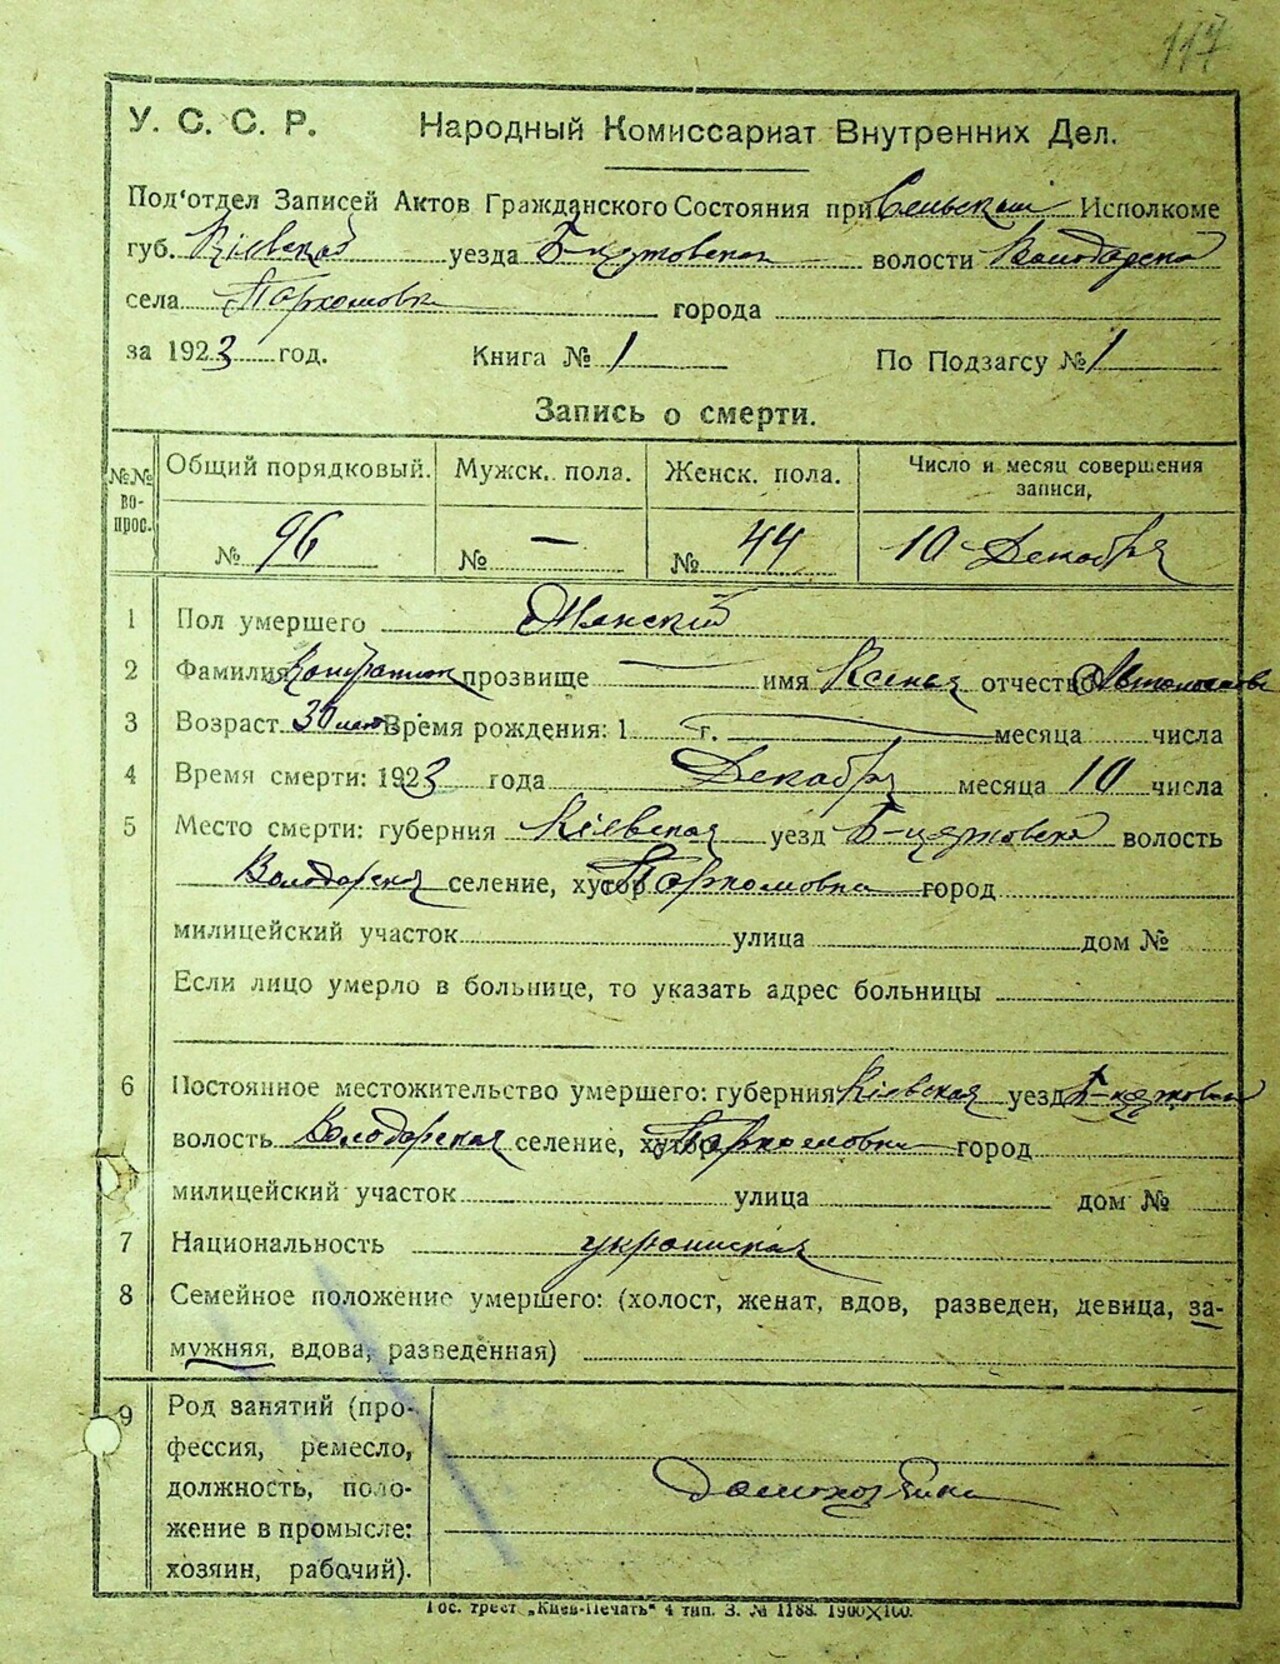 117
У. С. С. Р. Народный Комиссариат Внутренних Дел.
Под'отдел Записей Актов Гражданского Состояния при Сельским Исполкоме
губ. Кіевской уезда Б-церковская волости Володарская
села Пархомовка города
за 1923 год. Книга № 1 По Подзагсу № 1
Запись о смерти.
№№ во-прос. Общий порядковый. Мужск. пола. Женск. пола. Число и месяц совершения записи,
№ 96 № — № 44 10 Декабря
1 Пол умершего Женский
2 Фамилия прозвище — имя Ксенья отчество
3 Возраст 30 лет Время рождения: 1 г. месяца числа
4 Время смерти: 1923 года Декабря месяца 10 числа
5 Место смерти: губерния Кіевская уезд Б-церковская волость
Володарская селение, хутор Пархомовка город
милицейский участок улица дом №
Если лицо умерло в больнице, то указать адрес больницы
6 Постоянное местожительство умершего: губерния Кіевская уезд Б-церковская
волость Володарская селение, хутор Пархомовка город
милицейский участок улица дом №
7 Национальность украинская
8 Семейное положение умершего: (холост, женат, вдов, разведен, девица, за-
мужняя, вдова, разведенная)
9 Род занятий (про-
фессия, ремесло,
должность, поло- домохозяйка
жение в промысле:
хозяин, рабочий).
Гос. трест „Киев-Печать" 4 тип. З. № 1188. 1900×100.